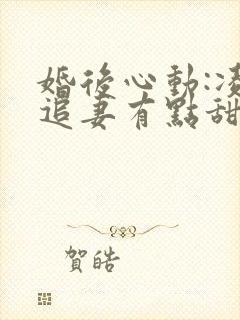 婚後心動:凌
追妻有點甜
賀皓